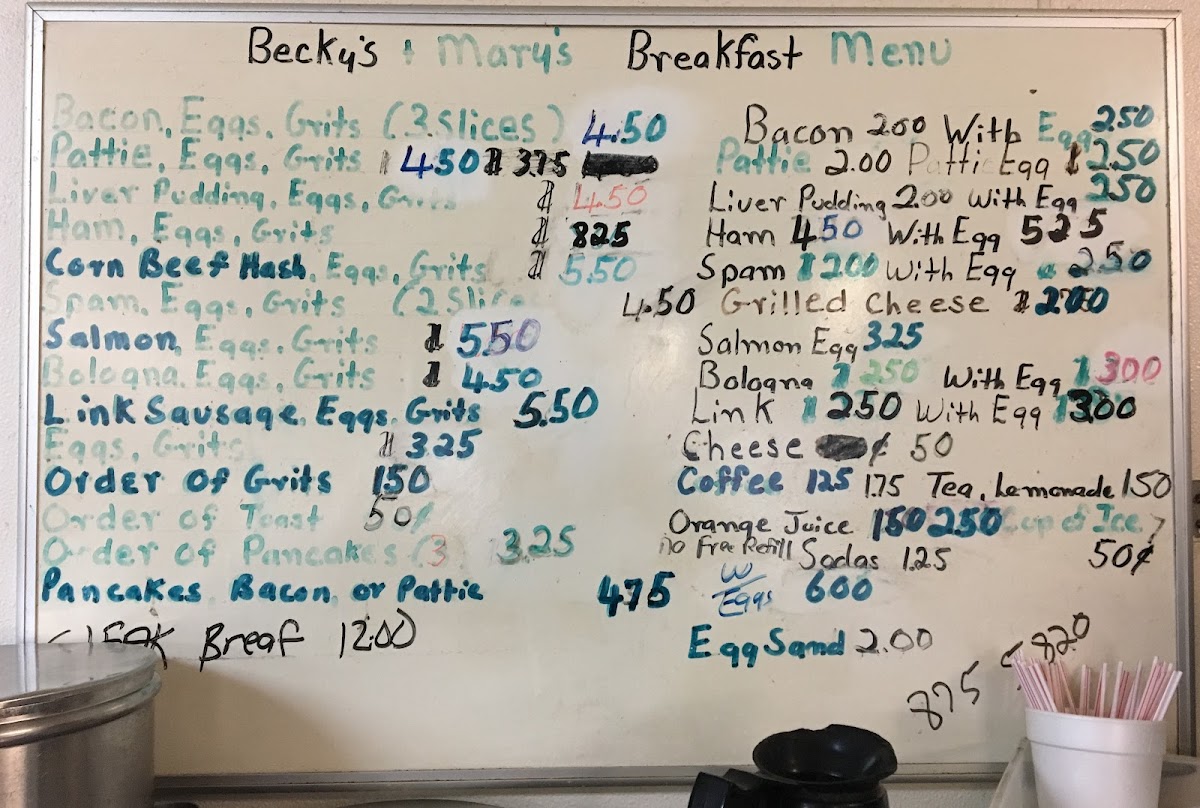 Becky's + Mary's Breakfast Menu
Bacon, Eggs, Grits (3 Slices) 4.50
Pattie, Eggs, Grits 4.50 $ 3.75
Liver Pudding, Eggs, Grits $ 4.50
Ham, Eggs, Grits $ 825
Corn Beef Hash, Eggs, Grits $ 5.50
Spam, Eggs, Grits (2 Slice 4.50
Salmon, Eggs, Grits $ 550
Bologna, Eggs, Grits $ 4.50
Link Sausage, Eggs, Grits 5.50
Eggs, Grits $ 325
Order of Grits 150
Order of Toast 50¢
Order of Pancakes (3 3.25
Pancakes Bacon or Pattie 475
Breaf 12.00
Bacon 200 With Egg 250
Pattie 2.00 Patti Egg $ 250
Liver Pudding 2.00 With Egg 250
Ham 450 With Egg 525
Spam $200 With Egg 250
Grilled Cheese $ 200
Salmon Egg 325
Bologna $ 250 With Egg $ 300
Link $ 250 With Egg $ 300
Cheese ¢ 50
Coffee 125 1.75 Tea, Lemonade 150
Orange Juice 150 250 Cup of Ice
No Free Refill Sodas 1.25 50¢
W/ Eggs 600
Egg Sand 2.00
875 820